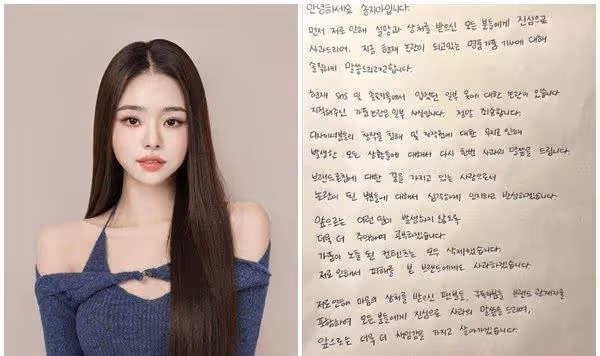 안녕하세요 송지아입니다.
먼저 저로 인해 실망과 상처를 받으신 모든 분들에게 진심으로
사과드리며, 지금 현재 논란이 되고있는 명품가품 기사에 대해
솔직하게 말씀드리려고합니다.
현재 SNS 및 솔로지옥에서 입었던 일부 옷에 대한 논란이 있습니다
지적해주신 가품논란은 일부 사실입니다. 정말 죄송합니다.
디자이너분들의 창작물 침해 및 저작권에 대한 무지로 인해
발생한 모든 상황들에 대해서 다시 한번 사과의 말씀을 드립니다.
브랜드론칭에 대한 꿈을 가지고 있는 사람으로서
논란이 된 부분들에 대해서 심각하게 인지하고 반성하겠습니다.
앞으로는 이런 일이 발생하지 않도록
더욱 더 주의하며 공부하겠습니다.
가품이 노출 된 컨텐츠는 모두 삭제했습니다.
저로 인해서 피해를 본 브랜드에게도 사과하겠습니다.
저로인해 마음의 상처를 받으신 팬분들, 구독자분들 브랜드 관계자를
포함하여 모든 분들에게 진심으로 사과의 말씀을 드리며,
앞으로는 더욱 더 책임감을 가지고 살아가겠습니다.